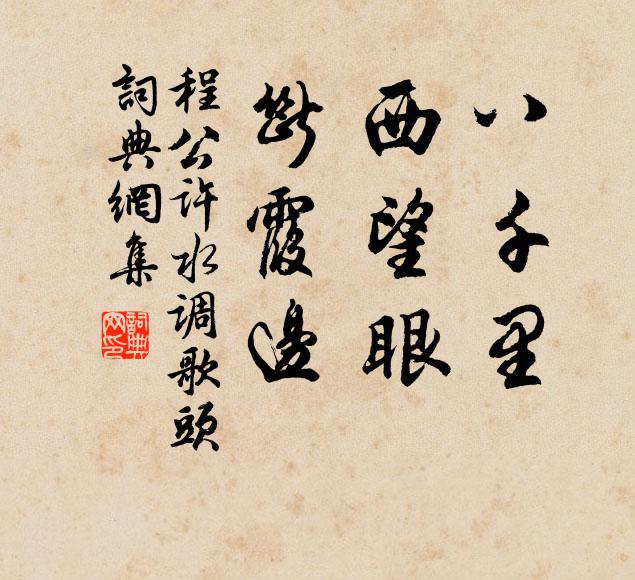 八千里
西望眼
斷霞邊
程公许水调歌頭
詞典網集
詞典
网印